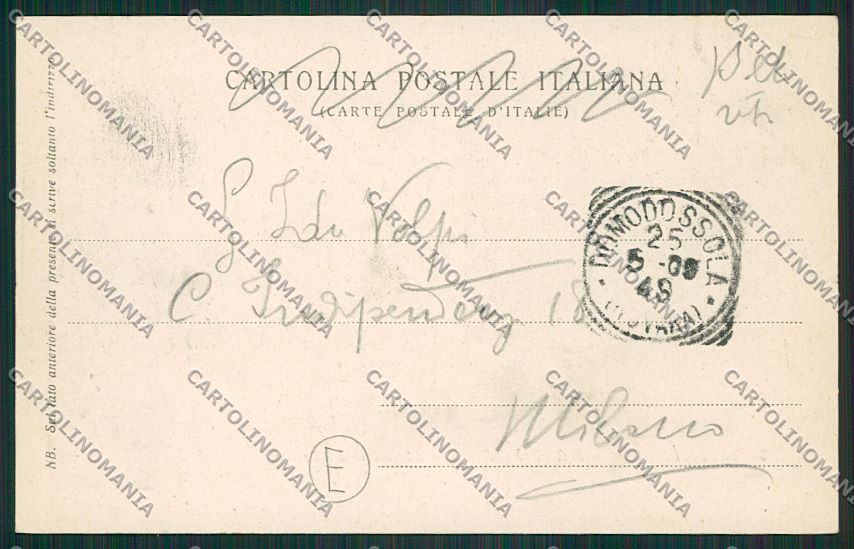 CARTOLINA POSTALE ITALIANA
(CARTE POSTALE D'ITALIE)
NB. Sul lato anteriore della presente si scrive soltanto l'indirizzo.
DOMODOSSOLA
25
5 -08
(NOVARA)
Ida Volpi
C. Indipendenza 18
Milano
E
CARTOLINOMANIA